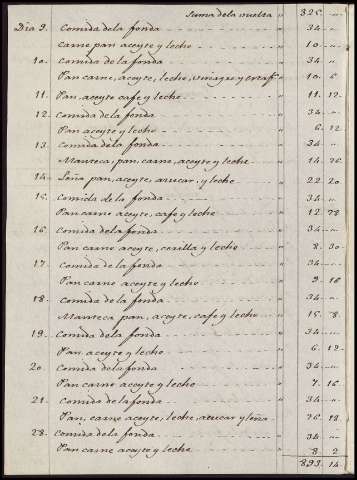 Suma de la vuelta " 325 "
Dia 9. Comida de la fonda " 34 "
Carne pan aceyte y leche " 10 "
10. Comida de la fonda " 34 "
Pan carne, aceyte, leche, vinagre y " 10. 6
11. Pan, aceyte cafe y leche " 11. 12.
12. Comida de la fonda " 34 "
Pan aceyte y leche " 6. 12
13. Comida de la fonda " 34 "
Manteca, pan, carne, aceyte, y leche " 14
14. Leña pan, aceyte, azucar, y leche " 22 20
15. Comida de la fonda " 34 "
Pan carne aceyte, cafe y leche " 12
16. Comida de la fonda " 34 "
Pan carne aceyte, y leche " 8. 30
17. Comida de la fonda " 34 "
Pan carne aceyte y leche " 9
18. Comida de la fonda " 34 "
Manteca pan, aceyte, cafe y leche " 15 8
19. Comida de la fonda " 34 "
Pan, aceyte y leche " 6. 12
20. Comida de la fonda " 34 "
Pan carne aceyte y leche " 7. 16
21. Comida de la fonda " 34 "
Pan, carne aceyte, leche, azucar y leña "
Comida de la fonda " 34 "
Pan carne aceyte y leche " 8 2
893. 14